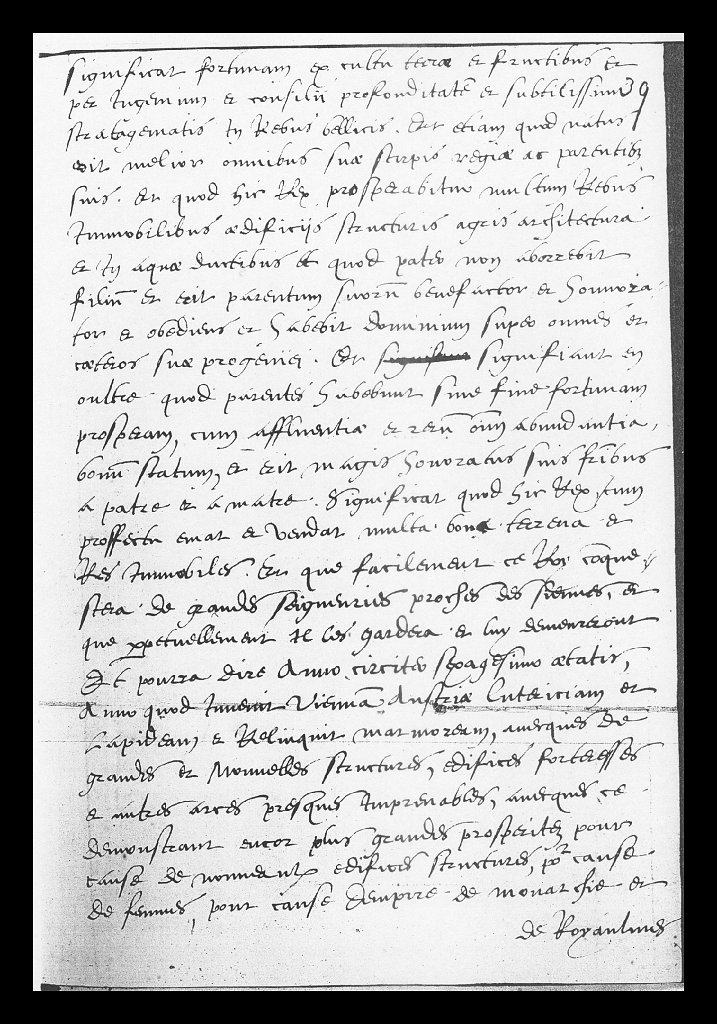 significat fortunam ex cultu terræ et fructibus et
per Ingenium et consilii profonditatē et subtilissimis
39
stratagematis In Rebus bellicis. Et etiam quod natus
erit melior omnibus suæ stirpis regiæ ac parentibȝ
suis. Et quod hic Rex prosperabitur multum Rebus
Immobilibus ædificijs structuris agris architectura
et In aquæ ductibus et quod pater non aborrebit
filiū et erit parentum suorū benefactor et honnora-
tor et obediens et habebit dominium super omnes et
cæteros suæ progeniei. Et significant en
oultre quod parentes habebunt sine fine fortunam
prosperam, cum affluentiæ et rerū oīm abundantia,
bonū statum, et erit magis honoratus suis frībus
a patre et a matre. Significat quod hic Rex cum
proffectu emat et vendat multa bona terrena et
Res Immobiles. Et que facilement ce Roy cōque-
stera de grandes seigneuries proches des siennes, et
que ꝑpetuellement Il les gardera et luy demeureront
Et pourra dire Anno circiter sexagesimo ætatis,
Anno quod Invenit Viennā Austriæ Lutericiam et
Lapideam et Relinquit marmoream, avecques de
grandes et Nouvelles structures, edifices forteresses
et autres arces presques Imprenables, avecques ce
demonstrant encor plus grandes prosperitez pour
cause de nouveaulx edifices structures, poʳ cause
de femmes, pour cause dempire de monarchie et
de Royaulmes